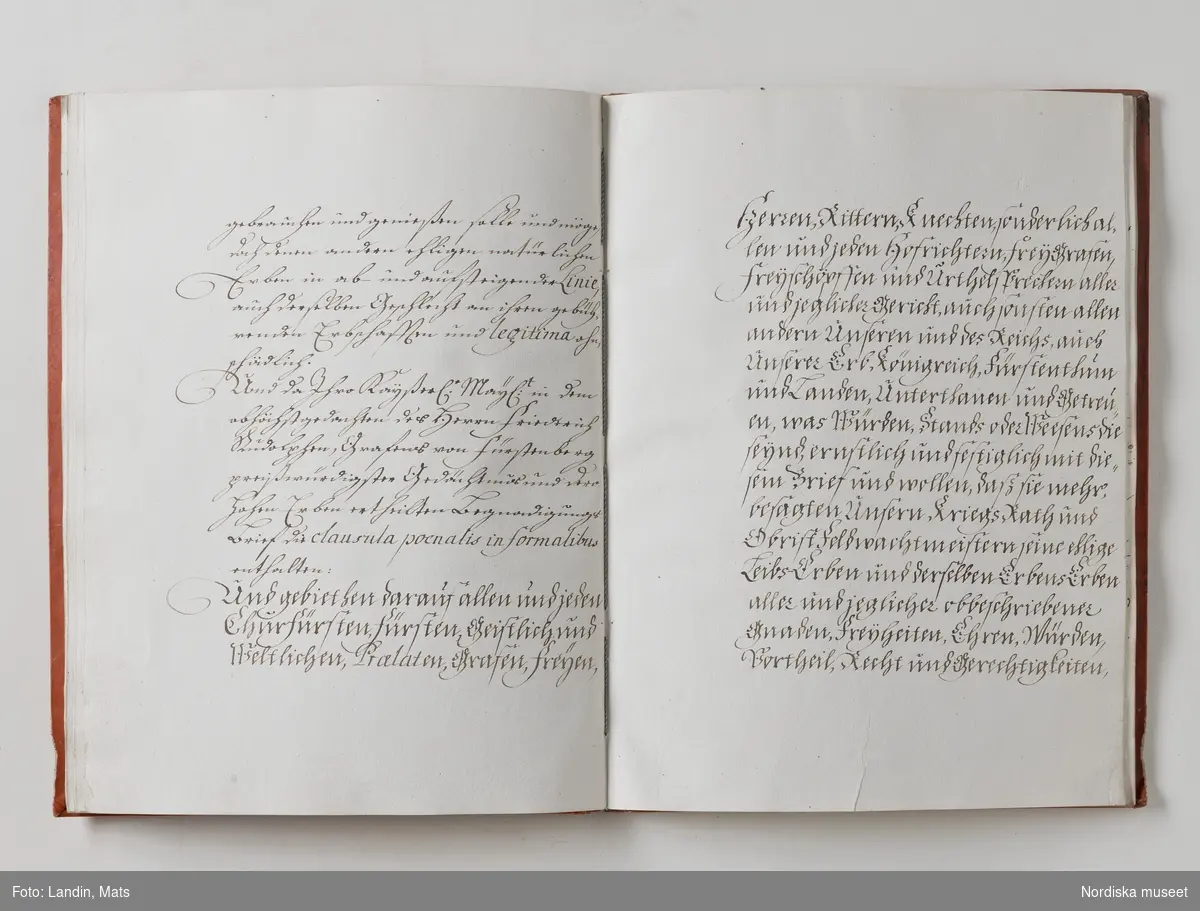 gebrauchen und genießen solle und möge,
doch denen andern ehligen natürlichen
Erben in ab- und aufsteigender Linie,
auch derselben Geschlecht an ihren gebüh,
renden Erbschafften und legitima ohn,
schädlich.
Und da Ihro Kayßerl. Mayt. in dem
obhöchstgedachten des Herrn Friedrich
Rudolphen, Grafens von Fürstenberg
preißwürdigster Gedächtnus und dero
hohen Erben ertheilten Begnadigungs
Brief die clausula poenalis in formalibus
enthalten:
Und gebiethen darauf allen und jeden
Churfürsten, Fürsten, Geistlich und
Weltlichen, Prælaten, Grafen, Freyen,
Herren, Rittern, Knechten, sonderlich al,
len und jeden Hofrichtern, FreyGrafen,
Freyschöpffen und Urthelsprechern aller
und jeglicher Gericht, auch sonsten allen
andern Unseren und des Reichs, auch
Unserer Erb, Königreich, Fürstenthum
und Landen, Unterthanen und Getreu,
en, was Würden, Stands oder Weesens die
seynd, ernstlich und festiglich mit die,,
sem Brief und wollen, daß sie mehr,
besagten Unsern Kriegs Rath und
Obrist Feldwachtmeistern seine ehlige
Leibs Erben und derselben Erbens Erben
aller und jeglicher obbeschriebener
Gnaden, Freyheiten, Ehren, Würden,
Vortheil, Recht und Gerechtigkeiten,
Foto: Landin, Mats
Nordiska museet